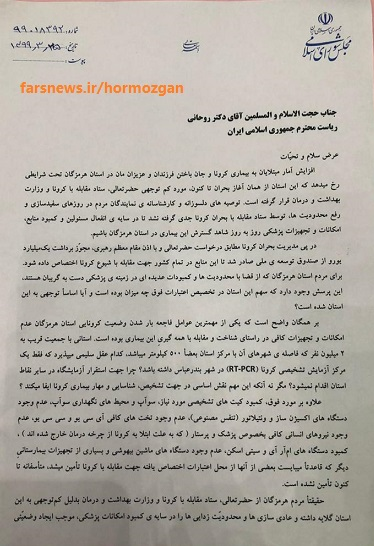 جمهوری اسلامی ایران
مجلس شورای اسلامی
شماره: ۹۹۰۱۸۳۹۲
تاریخ: ۱۳۹۹/۳/۲۵
پیوست:
farsnews.ir/hormozgan
جناب حجت الاسلام و المسلمین آقای دکتر روحانی
ریاست محترم جمهوری اسلامی ایران
عرض سلام و تحیّات
افزایش آمار مبتلایان به بیماری کرونا و جان باختن فرزندان و عزیزان مان در استان هرمزگان تحت شرایطی
رخ میدهد که این استان از همان آغاز بحران تا کنون، مورد کم توجهی حضرتعالی، ستاد مقابله با کرونا و وزارت
بهداشت و درمان قرار گرفته است. توصیه های دلسوزانه و کارشناسانه ی نمایندگان مردم در روزهای سفیدسازی و
رفع محدودیت ها، توسط ستاد مقابله با بحران کرونا جدی گرفته نشد تا در سایه ی انفعال مسئولین و کمبود منابع،
امکانات و تجهیزات پزشکی روز به روز شاهد گسترش این بیماری در استان هرمزگان باشیم.
در پی مدیریت بحران کرونا مطابق درخواست حضرتعالی و با اذن مقام معظم رهبری، مجوّز برداشت یک‌میلیارد
یورو از صندوق توسعه ی ملی صادر شد تا این منابع در تمام کشور جهت مقابله با شیوع کرونا اختصاص داده شود.
برای مردم استان هرمزگان که از قضا با محدودیت ها و کمبودات عدیده ای در زمینه ی پزشکی دست به گریبان هستند،
این پرسش وجود دارد که سهم این استان در تخصیص اعتبارات فوق چه میزان بوده است و آیا اساساً توجهی به این
استان شده است؟
بر همگان واضح است که یکی از مهمترین عوامل فاجعه بار شدن وضعیت کرونایی استان هرمزگان عدم
امکانات و تجهیزات کافی در راستای شناخت و مقابله با همه گیری این بیماری بوده است. استانی با جمعیت قریب به
۲ میلیون نفر که فاصله ی شهرهای آن با مرکز استان بعضاً ۵۰۰ کیلومتر میباشد، کدام عقل سلیمی میپذیرد که فقط یک
مرکز آزمایش تشخیصی کرونا (RT-PCR) در شهر بندرعباس داشته باشد؟ چرا جهت استقرار آزمایشگاه در سایر نقاط
استان اقدام نمیشود؟ مگر نه آنکه این مهم نقش اساسی در جهت تشخیص، شناسایی و مهار بیماری کرونا ایفا میکند ؟
علاوه بر مورد فوق، کمبود کیت های تشخیصی مورد نیاز، سوآپ و محیط های نگهداری سوآپ، عدم وجود
دستگاه های اکسیژن ساز و ونتیلاتور (تنفس مصنوعی)، عدم وجود تخت های کافی آی سی یو و سی سی یو، عدم
وجود نیروهای انسانی کافی بخصوص پزشک و پرستار ( که به علت ابتلا به کرونا از چرخه درمان خارج شده اند ) ،
کمبود دستگاه های ام‌آر آی و سیتی اسکن، عدم وجود دستگاه های ماشین بیهوشی و بسیاری از تجهیزات بیمارستانی
دیگر که قاعدتاً میبایست بعضی از آنها از محل اعتبارات اختصاص یافته جهت مقابله با کرونا تأمین میشد، متأسفانه تا
کنون تأمین نشده است.
حقیقتاً مردم هرمزگان از حضرتعالی، ستاد مقابله با کرونا و وزارت بهداشت و درمان بدلیل کم‌توجهی به این
استان گلایه داشته و عادی سازی ها و محدودیّت زدایی ها را در سایه ی کمبود امکانات پزشکی، موجب ایجاد وضعیّتی